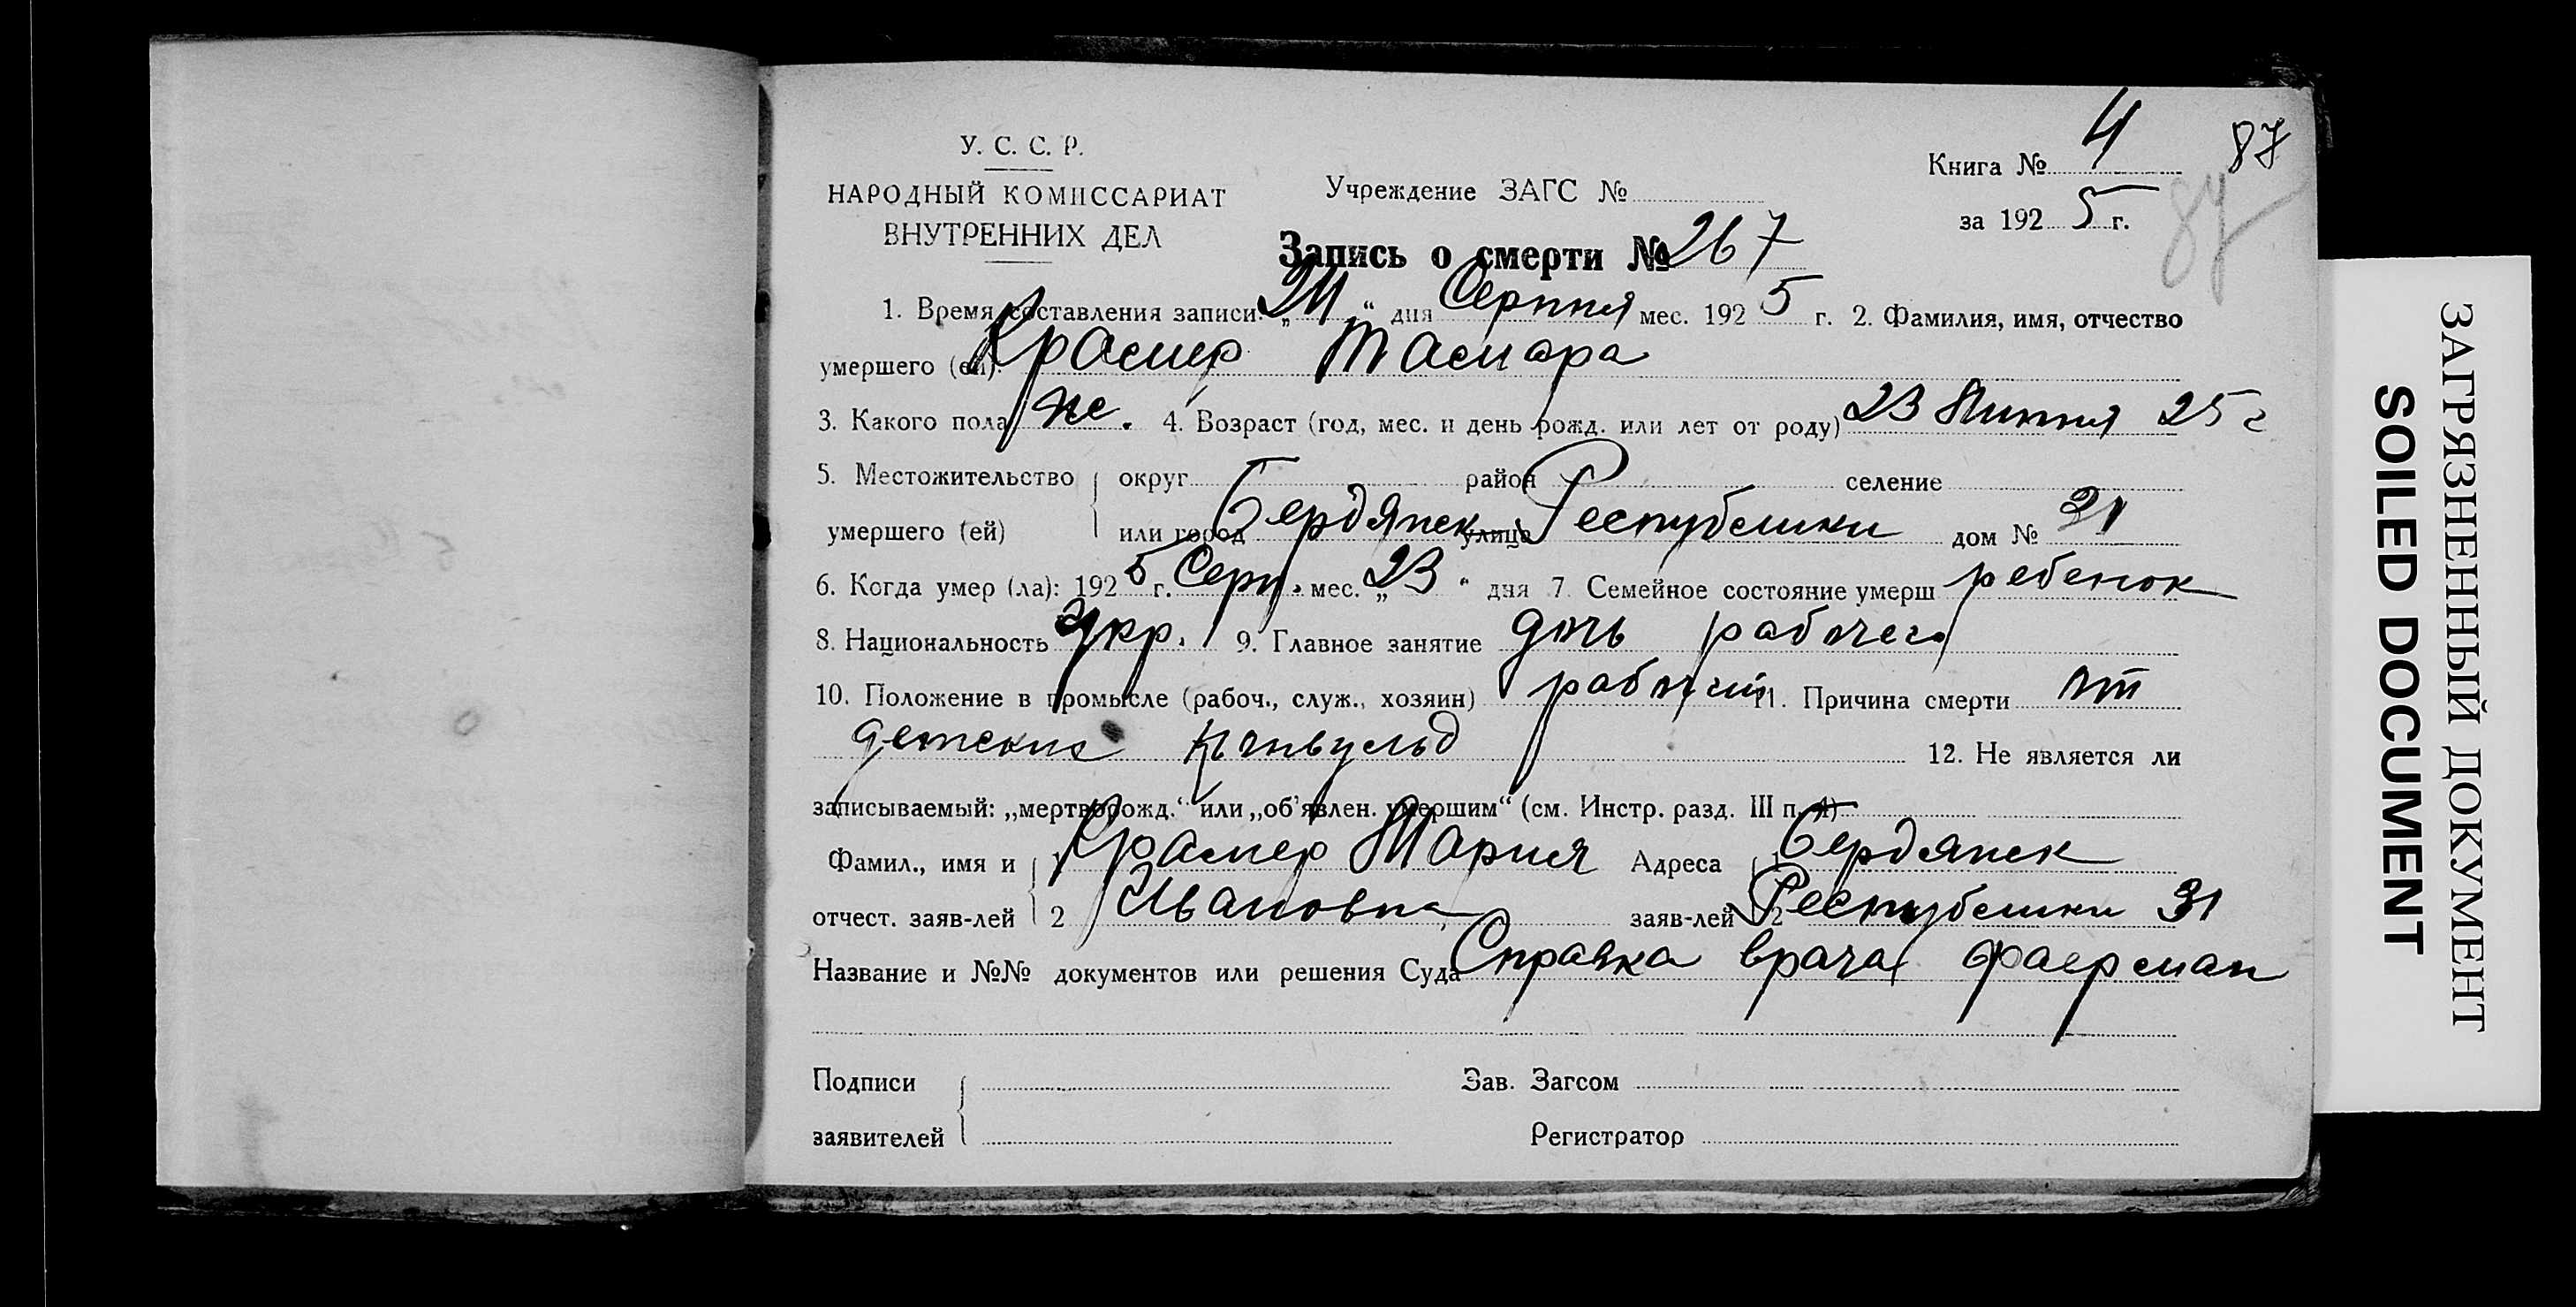 У. С. С. Р.
НАРОДНЫЙ КОМИССАРИАТ
ВНУТРЕННИХ ДЕЛ
Учреждение ЗАГС №
Книга № 4
87
87
за 1925 г.
Запись о смерти № 267
1. Время составления записи: „24“ дня Серпня мес. 1925 г. 2. Фамилия, имя, отчество
умершего (ей): Крамер Тамара
3. Какого пола же. 4. Возраст (год, мес. и день рожд. или лет от роду) 23 Липня 25 г
5. Местожительство округ район селение
умершего (ей) или город Бердянск улица Республики дом № 31
6. Когда умер (ла): 1925 г. Серп. мес. „23“ дня 7. Семейное состояние умерш ребенок
8. Национальность Укр. 9. Главное занятие дочь рабочего
10. Положение в промысле (рабоч., служ., хозяин) рабочий 11. Причина смерти от
детских конвульд 12. Не является ли
записываемый: „мертворожд.“ или „об'явлен. умершим“ (см. Инстр. разд. III п. 4)
Фамил., имя и 1 Крамер Мария Адреса 1 Бердянск
отчест. заяв-лей 2 Ивановна заяв-лей 2 Республики 31
Название и №№ документов или решения Суда Справка врача Фаерман
Подписи
заявителей
Зав. Загсом
Регистратор
ЗАГРЯЗНЕННЫЙ ДОКУМЕНТ
SOILED DOCUMENT